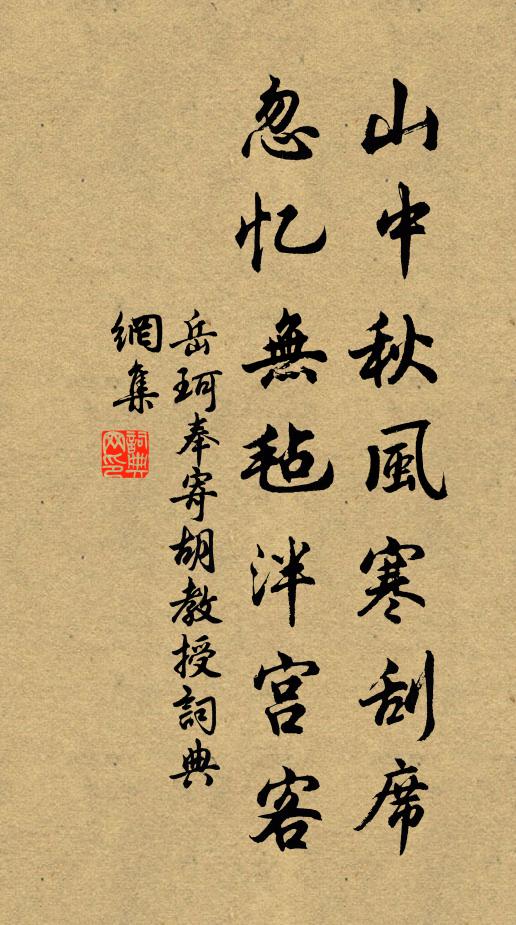 山中秋風寒刮席
忽忆無毡泮宫客
岳珂奉寄胡教授詞典
網集
詞典網印